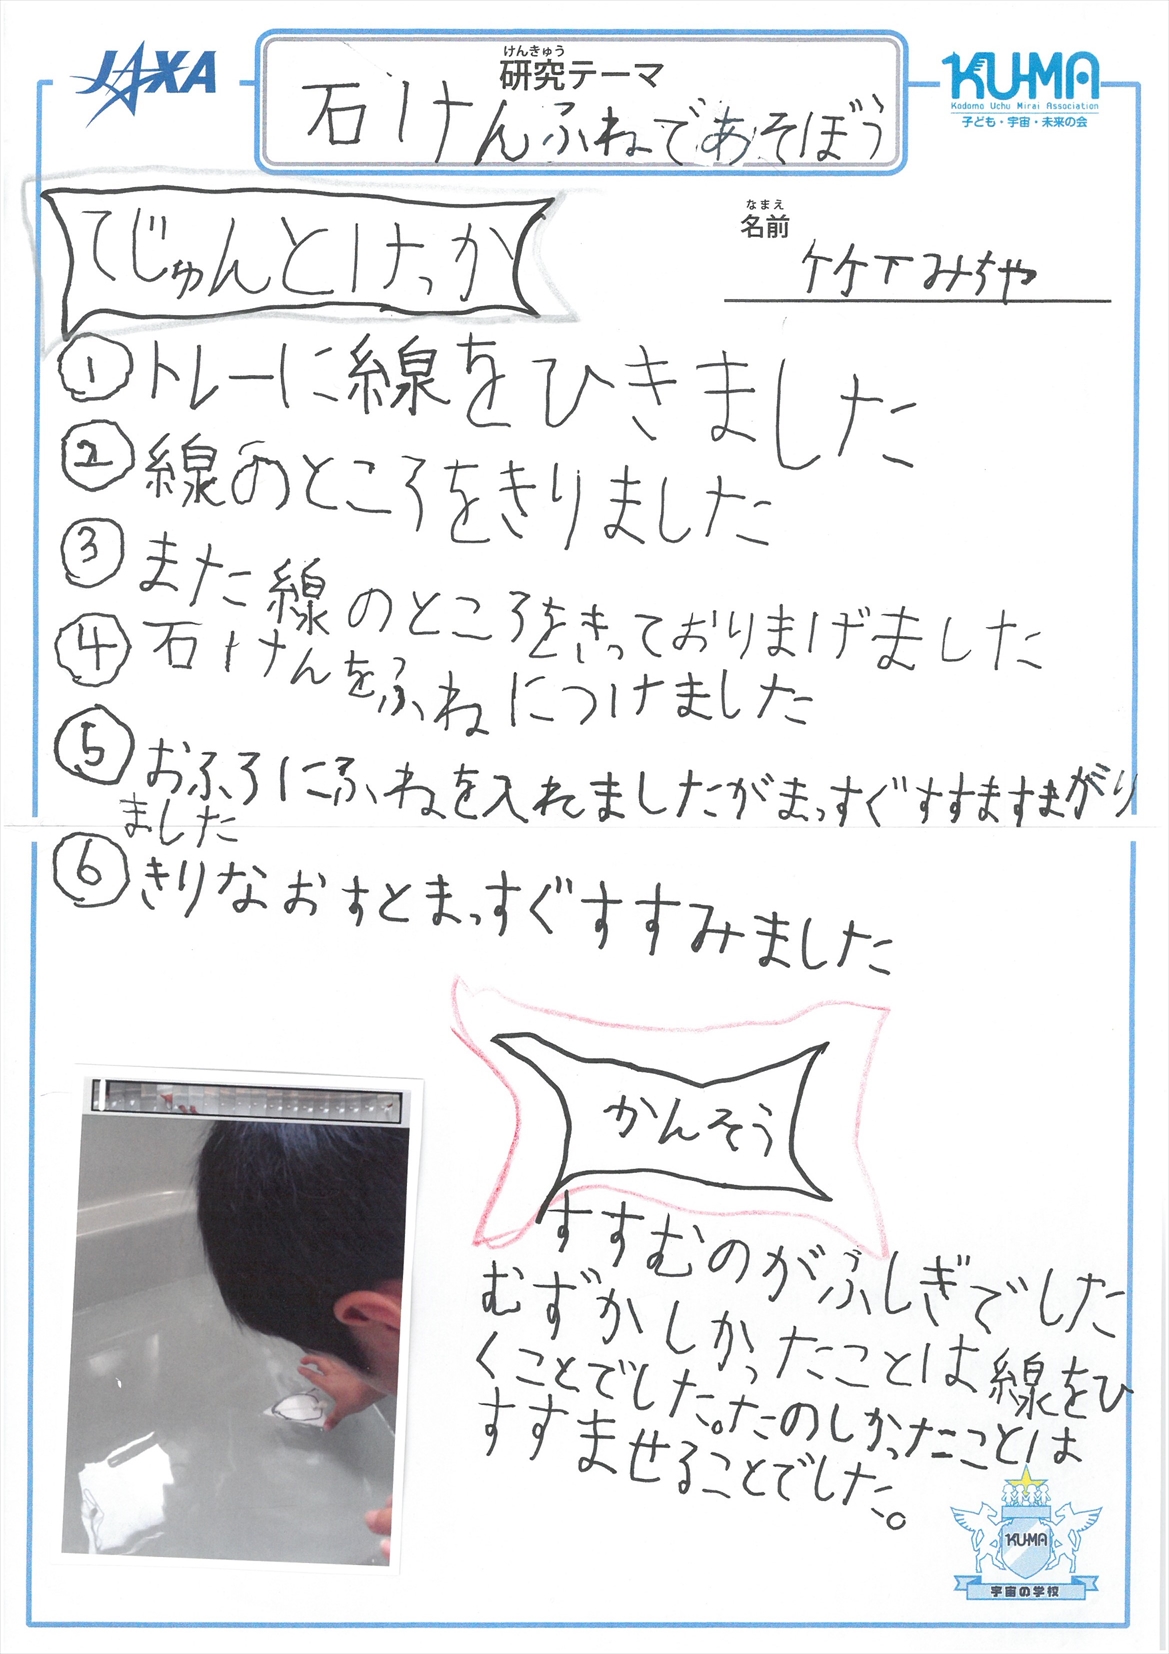 JAXA
けんきゅう
研究テーマ
石けんふねであそぼう
KU-MA
Kodomo Uchu Mirai Association
子ども・宇宙・未来の会
てじゅんとけっか
なまえ
名前
竹下みちや
① トレーに線をひきました
② 線のところをきりました
③ また線のところをきっておりまげました
④ 石けんをふねにつけました
⑤ おふろにふねを入れましたがまっすぐすすますまがり
ました
⑥ きりなおすとまっすぐすすみました
かんそう
すすむのがふしぎでした
むずかしかったことは線をひ
くことでした。たのしかったことは
すすませることでした。
KU-MA
宇宙の学校